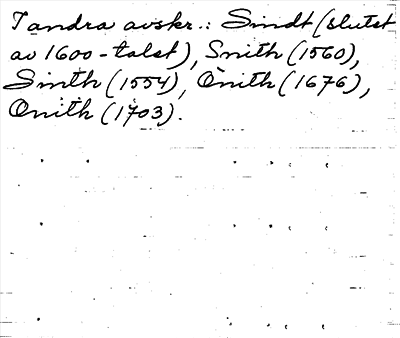 I andra avskr.: Smidt (slutet
av 1600-talet), Smith (1560),
Sinith (1554), Onith (1676),
Onith (1703).